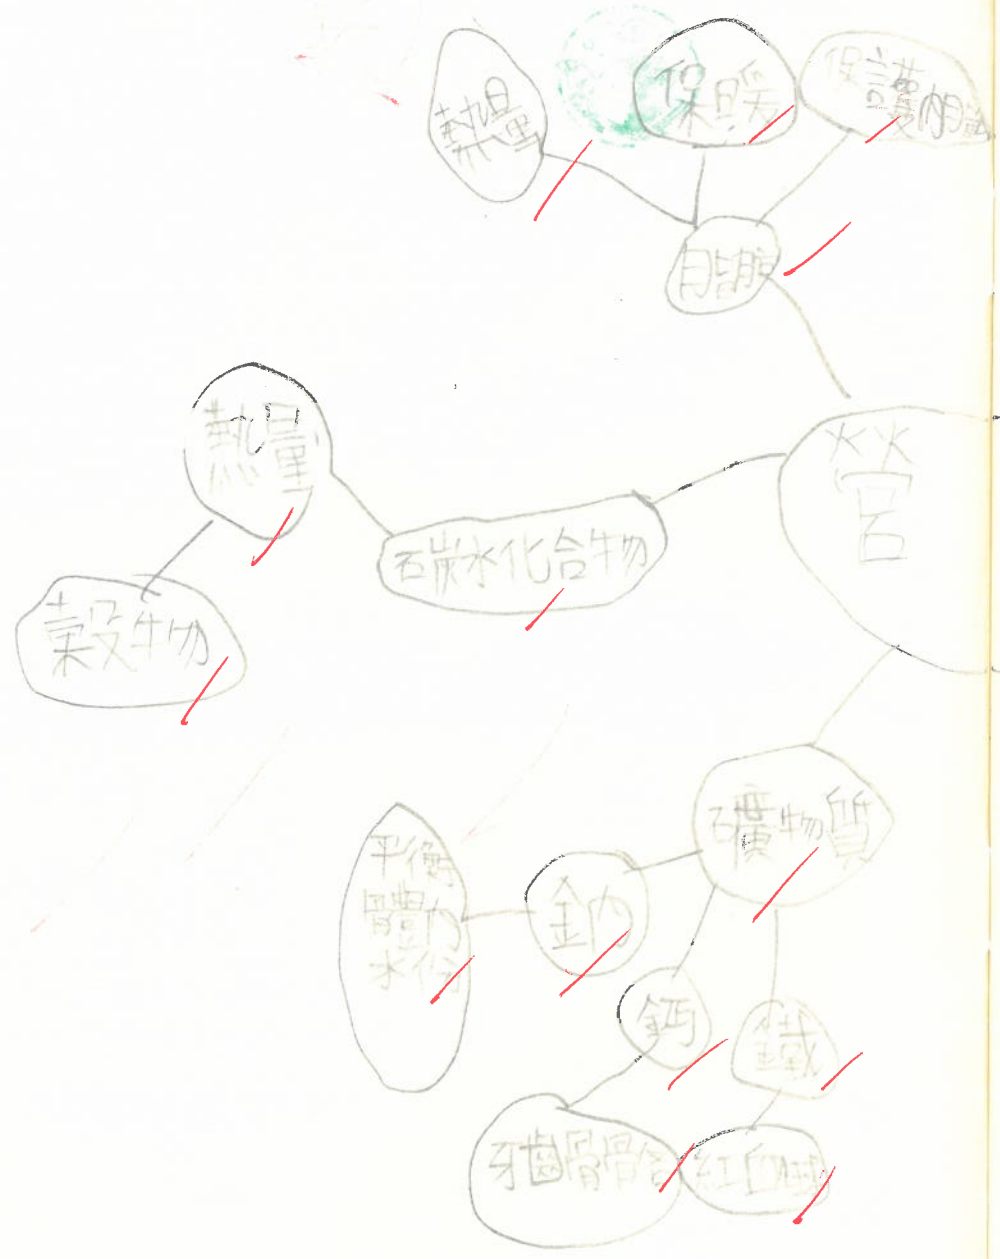 熱量
保暖
保護內臟
脂肪
熱量
碳水化合物
穀物
營
礦物質
平衡
體內
水份
鈉
鈣
鐵
牙齒骨骼
紅血球